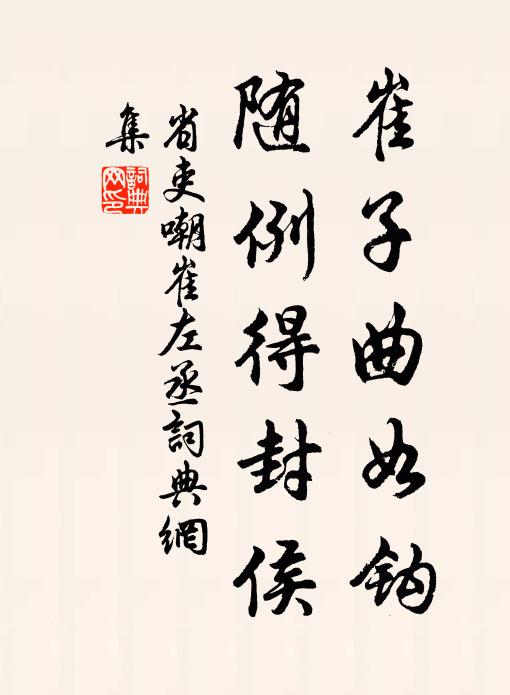 崔子曲如钩
随例得封侯
省吏嘲崔左丞詞典網
集
詞典網印